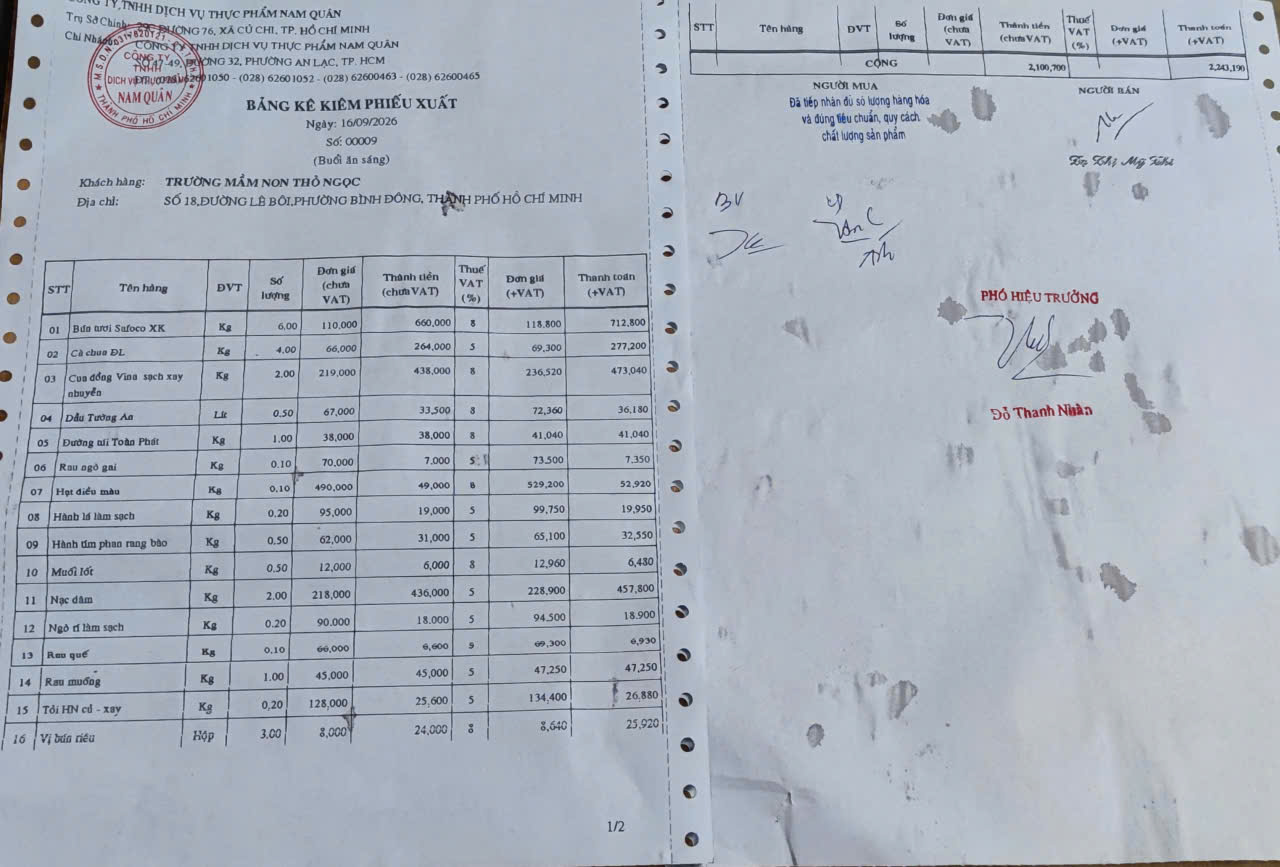 CÔNG TY TNHH DỊCH VỤ THỰC PHẨM NAM QUÂN
Trụ Sở Chính: 29, ĐƯỜNG 76, XÃ CỦ CHI, TP. HỒ CHÍ MINH
Chi Nhánh: CÔNG TY TNHH DỊCH VỤ THỰC PHẨM NAM QUÂN
49, ĐƯỜNG 32, PHƯỜNG AN LẠC, TP. HCM
ĐT: (028) 62601050 - (028) 62601052 - (028) 62600463 - (028) 62600465
CÔNG TY
TNHH
DỊCH VỤ THỰC PHẨM
NAM QUÂN
THÀNH PHỐ HỒ CHÍ MINH
BẢNG KÊ KIÊM PHIẾU XUẤT
Ngày: 16/09/2026
Số: 00009
(Buổi ăn sáng)
Khách hàng: TRƯỜNG MẦM NON THỎ NGỌC
Địa chỉ: SỐ 18,ĐƯỜNG LÊ BÔI,PHƯỜNG BÌNH ĐÔNG, THÀNH PHỐ HỒ CHÍ MINH
STT Tên hàng ĐVT Số lượng Đơn giá (chưa VAT) Thành tiền (chưa VAT) Thuế VAT (%) Đơn giá (+VAT) Thanh toán (+VAT)
01 Bún tươi Safoco XK Kg 6.00 110,000 660,000 8 118,800 712,800
02 Cà chua ĐL Kg 4.00 66,000 264,000 5 69,300 277,200
03 Cua đồng Vina sạch xay nhuyễn Kg 2.00 219,000 438,000 8 236,520 473,040
04 Dầu Tường An Lít 0.50 67,000 33,500 8 72,360 36,180
05 Đường túi Toàn Phát Kg 1.00 38,000 38,000 8 41,040 41,040
06 Rau ngò gai Kg 0.10 70,000 7,000 5 73,500 7,350
07 Hạt điều màu Kg 0.10 490,000 49,000 8 529,200 52,920
08 Hành lá làm sạch Kg 0.20 95,000 19,000 5 99,750 19,950
09 Hành tím phan rang bào Kg 0.50 62,000 31,000 5 65,100 32,550
10 Muối Iốt Kg 0.50 12,000 6,000 8 12,960 6,480
11 Nạc dăm Kg 2.00 218,000 436,000 5 228,900 457,800
12 Ngò rí làm sạch Kg 0.20 90,000 18,000 5 94,500 18,900
13 Rau quế Kg 0.10 66,000 6,600 5 69,300 6,930
14 Rau muống Kg 1.00 45,000 45,000 5 47,250 47,250
15 Tỏi HN củ - xay Kg 0.20 128,000 25,600 5 134,400 26,880
16 Vị bún riêu Hộp 3.00 8,000 24,000 8 8,640 25,920
1/2
STT Tên hàng ĐVT Số lượng Đơn giá (chưa VAT) Thành tiền (chưa VAT) Thuế VAT (%) Đơn giá (+VAT) Thanh toán (+VAT)
CỘNG 2,100,700 2,243,190
NGƯỜI MUA
Đã tiếp nhận đủ số lượng hàng hóa
và đúng tiêu chuẩn, quy cách
chất lượng sản phẩm
NGƯỜI BÁN
BV
PHÓ HIỆU TRƯỞNG
Đỗ Thanh Nhàn